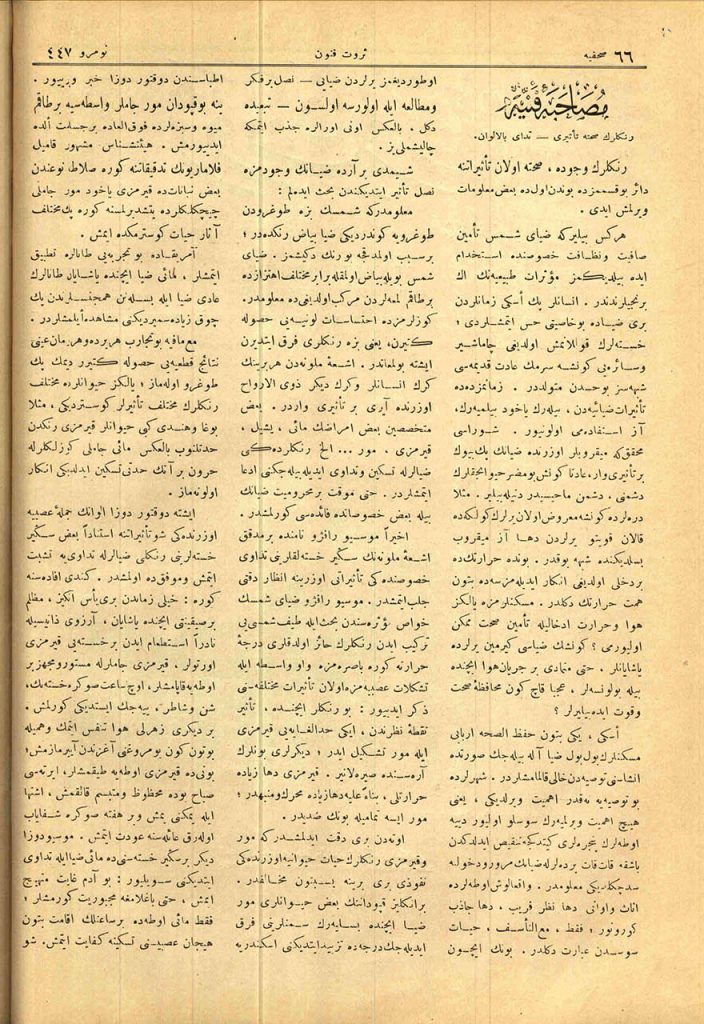 ٦٦ صحیفه
ثروت فنون
نومرو ٤٤٧
مصاحبهٔ فنیه
رنكلرك صحته تأثیری — تداوی بالالوان.
رنكلرك وجوده ، صحته اولان تأثیراتنه
دائر بوقسمزده بوندن اول ده بعض معلومات
ویرلمش ایدی .
هركس بیلیركه ضیای شمس تأمین
صافیت ونظافت خصوصنده استخدام
ایده بیلدیكمز مؤثرات طبیعیه نك اك
برنجیلرندندر . انسانلر پك أسكی زمانلردن
بری ضیاده بوخاصیتی حس ایتمشلردی ؛
خسته لرك قوللانمش اولدیغی چاماشیر
وسائره یی كونشه سرمك عادت قدیمه سی
شبهه سز بوحسدن متولددر . زمانمزده ده
تأثیرات ضیائیه دن ، بیله رك یاخود بیلمیه رك،
آز استفاده می اولنیور . شوراسی
محققكه میقروبلر اوزرنده ضیانك پك بیوك
برتأثیری وار، عادتا كونش بومضر حیوانجقلرك
دشمنی ، دشمن ماحیسیدر دنیله بیلیر . مثلا
دره لرده كونشه معروض اولان یرلرك كولكه ده
قالان قویتو یرلردن دها آز میقروب
بسله دیكنده شبهه یوقدر . بونده حرارتك ده
بردخلی اولدیغی انكار ایدیله مزسه ده بتون
همت حرارتك دكلدر . مسكنلرمزه یالكز
هوا وحرارت ادخالیله تأمین صحت ممكن
اولیورمی ؟ كونشك ضیاسی كیرمین یرلرده
یاشایانلر . حتی متمادی بر جریان هوا ایچنده
بیله بولونسه لر ، عجبا قاچ كون محافظهٔ صحت
وقوت ایده بیلیرلر ؟
أسكی ، یكی بتون حفظ الصحه اربابی
مسكنلرك بول بول ضیا آله بیله جك صورتده
انشاسنی توصیه دن خالی قالمامشلردر . شهرلرده
بو توصیه یه نه قدر اهمیت ویرلدیكی ، یعنی
هیچ اهمیت ویرلمیه رك سوسلو اولیور دییه
اوطه لرك پنجره لری كیتدكجه تنقیص ایدلدكدن
باشقه قات قات پرده لرله ضیانك مرورو دخولنه
سد چكلدیكی معلومدر . واقعا لوش اوطه لرده
اثاث واوانی دها نظر فریب ، دها جاذب
كورونور ؛ فقط ، مع التأسف ، حیات
سوسدن عبارت دكلدر . بونك ایچون
اوطوردیغمز یرلردن ضیایی — نصل برفكر
ومطالعه ایله اولورسه اولسون — تبعیده
دكل . بالعكس اونی اورالره جذب ایتمكه
چالیشملی یز .
شیمدی بر آزده ضیانك وجودمزه
نصل تأثیر ایتدیكندن بحث ایده لم :
معلومدركه شمسك بزه طوغرودن
طوغرویه كوندردیكی ضیا بیاض رنكده در ؛
برسبب اولمدقجه بو رنك دكیشمز . ضیای
شمس بویله بیاض اولمقله برابر مختلف اهتزازده
برطاقم لمعه لردن مركب اولدیغی ده معلومدر.
كوزلرمزده احتساسات لونیه یی حصوله
كتیرن، یعنی بزه رنكلری فرق ایتدیرن
ایشته بولمعاتدر . اشعهٔ ملونه دن هربرینك
كرك انسانلر وكرك دیكر ذوی الارواح
اوزرنده آیری بر تأثیری واردر . بعض
متخصصین بعض امراضك مائی ، یشیل ،
قیرمزی . مور ... الخ رنكلرده كی
ضیالرله تسكین وتداوی ایدیله بیله جكنی ادعا
ایتمشلردر . حتی موقت بر محرومیت ضیانك
بیله بعض خصوصاتده فائده سی كورلمشدر .
اخیراً موسیو رافژو نامنده برمدقق
اشعهٔ ملونه نك سكیر خسته لقلرینی تداوی
خصوصنده كی تأثیراتی اوزرینه انظار دقتی
جلب ایتمشدر . موسیو رافژو ضیای شمسك
خواص مؤثره سندن بحث ایله طیف شمسی یی
تركیب ایدن رنكلرك حائز اولدقلری درجهٔ
حرارته كوره باصره مزه واو واسطه ایله
تشكلات عصبیه مزه اولان تأثیرات مختلفه سنی
ذكر ایدییور : بو رنكلر ایچنده ، تأثیر
نقطهٔ نظرندن ، ایكی حدالغایه یی قیرمزی
ایله مور تشكیل ایدر ؛ دیكرلری بونلرك
آره سنده صیره لانیر . قیرمزی دها زیاده
حرارتلی ، بناءً علیه دها زیاده محرك ومنبهدر ؛
مور ایسه تمامیله بونك ضدیدر .
اوته دن بری دقت ایدلمشدر كه مور
وقیرمزی رنكلرك حیات حیوانیه اوزرنده كی
نفوذی بری برینه بسبتون مخالفدر .
برانكلیز قپوداننك بعض حیوانلری مور
ضیا ایچنده بسلیه رك سمنلرینی فرق
ایدیله جك درجه ده تزیید ایتدیكنی اسكندریه
اطباسندن دوقتور دوزا خبر ویرییور .
ینه بوقپودان مور جاملر واسطه سیه برطاقم
میوه وسبزه لرده فوق العاده برجسامت ألده
ایدییورمش . هیئتشناس مشهور قامیل
فلاماریونك تدقیقاتنه كوره صلاطه نوعندن
بعض نباتات ده قیرمزی یاخود مور جاملی
چیچكلكلرده یتشدیرلمسنه كوره پك مختلف
آثار حیات كوسترمكده ایمش .
آمریقاده بو تجربه یی طانالره تطبیق
ایتمشلر ، مائی ضیا ایچنده یاشایان طانالرك
عادی ضیا ایله بسلنن همجنسلرندن پك
چوق زیاده سمیردیكنی مشاهده ایلمشلردر .
مع مافیه بوتجارب هریرده وهرزمان عینی
نتائج قطعیه یی حصوله كتیرر دیمك پك
طوغرو اوله ماز ؛ یالكز حیوانلرده مختلف
رنكلرك مختلف تأثیرلر كوستردیكی ، مثلا
بوغا وهندی كبی حیوانلر قیرمزی رنكدن
حدتلنوب بالعكس مائی جاملی كوزلكلرله
حرون بر آتك حدتی تسكین ایدلدیكی انكار
اولونه ماز .
ایشته دوقتور دوزا الوانك جملهٔ عصبیه
اوزرنده كی شو تأثیراتنه استناداً بعض سكیر
خسته لرینی رنكلی ضیالرله تداوی یه تشبث
ایتمش وموفق ده اولمشدر . كندی افاده سنه
كوره : خیلی زماندن بری یأس انكیز ، مظلم
برصیقینتی ایچنده یاشایان ، آرزوی ذاتیسیله
نادراً استطعام ایدن برخسته یی قیرمزی
اورتولر ، قیرمزی جاملرله مستور ومجهز بر
اوطه یه قاپامشلر، اوچ ساعت صوكره خسته نك،
شن وشاطر، ییه جك ایستدیكی كورلمش .
بر دیكری زهرلی هوا تنفس ایتمك وهمیله
بوتون كون یومروغنی آغزندن آییرمازمش ؛
بونی ده قیرمزی اوطه یه طیقمشلر، ایرته سی
صباح بوده محظوظ ومتبسم قالقمش ، اشتها
ایله یمكنی یمش وبر هفته صوكره شفایاب
اوله رق عائله سنه عودت ایتمش . موسیودوزا
دیكر برسكیر خسته سنی ده مائی ضیا ایله تداوی
ایتدیكنی سویلیور : بو آدم غایت متهیج
ایمش ، حتی باغلامغه مجبوریت كورمشلر ؛
فقط مائی اوطه ده برساعتلك اقامت بتون
هیجان عصبیسنی تسكینه كفایت ایتمش. شو